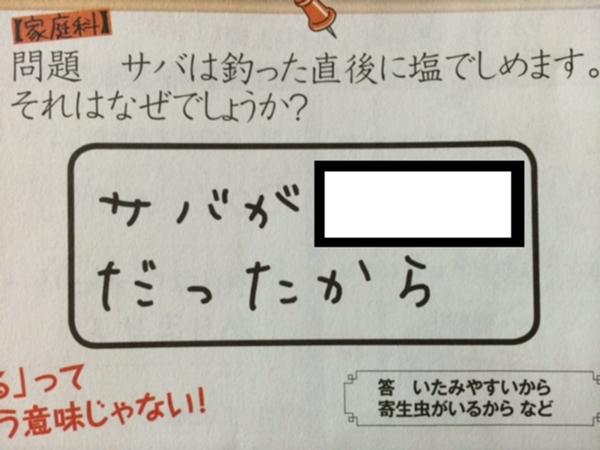 【家庭科】
問題　サバは釣った直後に塩でしめます。
それはなぜでしょうか?
サバが
だったから
る」って
う意味じゃない!
答　いたみやすいから
寄生虫がいるから など